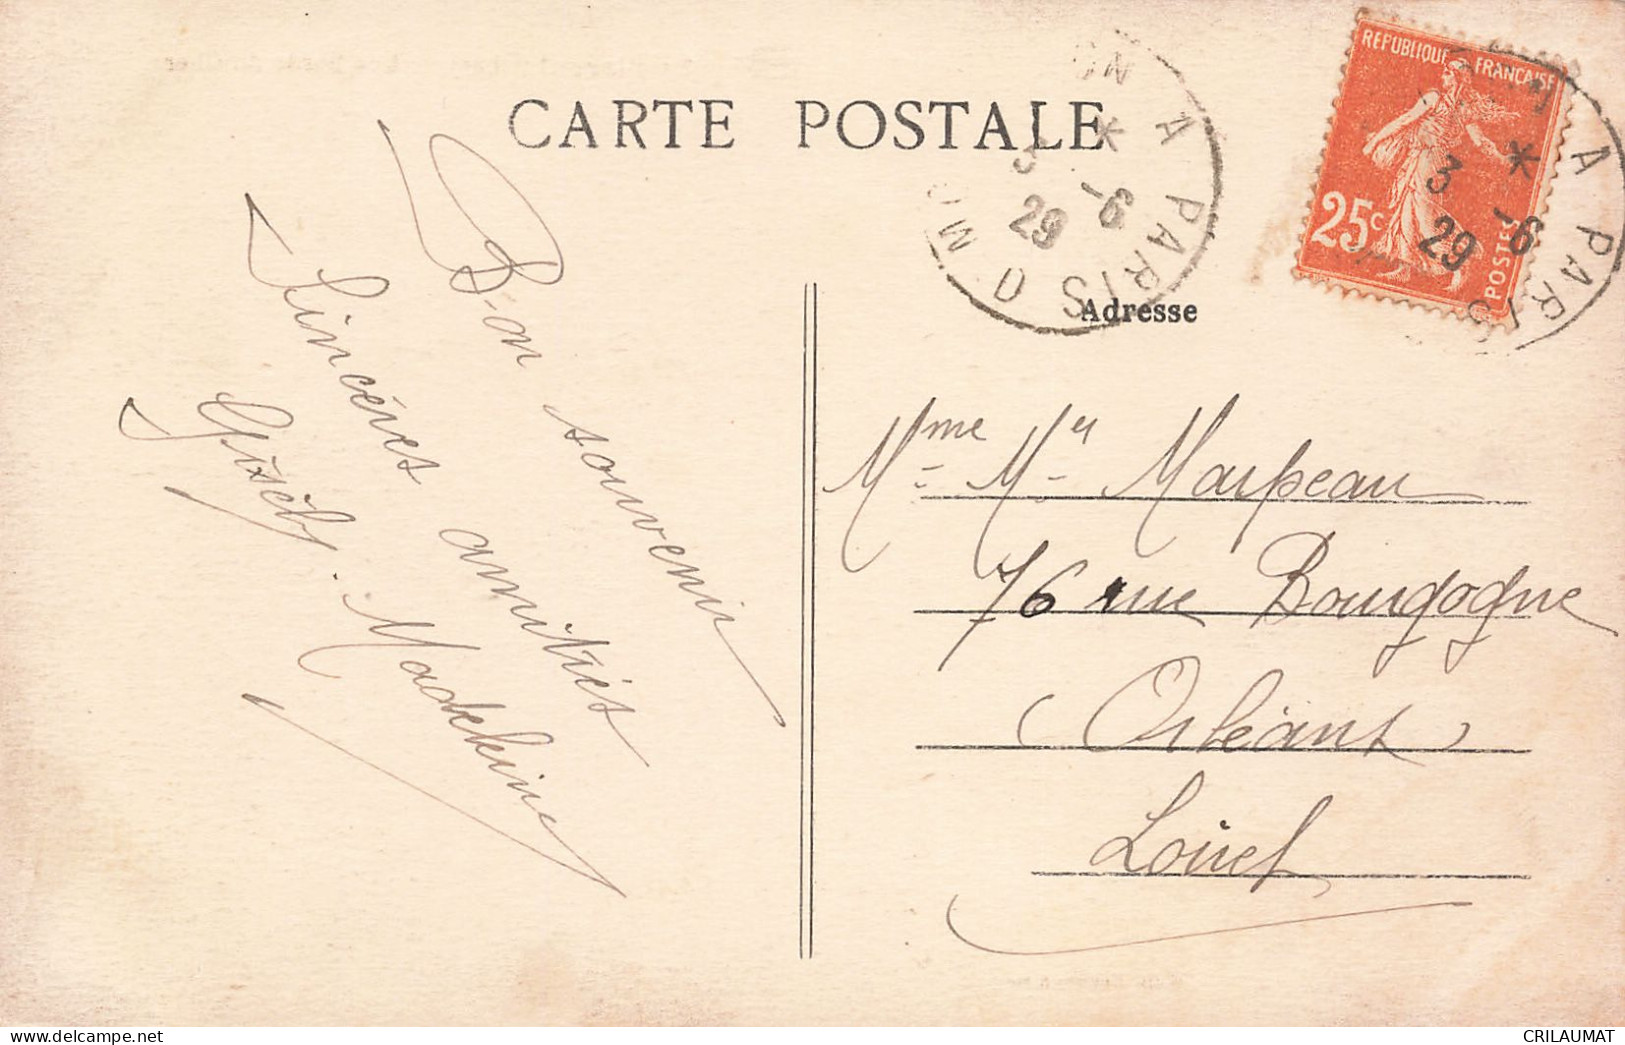 CARTE POSTALE
REPUBLIQUE FRANÇAISE
25c
POSTES
A PARIS
3 *
-6
29
A PARIS
3 *
-6
29
Adresse
Bon souvenir
Sincères amitiés
Gisèle. Madeleine
Mme Mr Marpeau
76 rue Bourgogne
Orléans
Loiret
CRILAUMAT